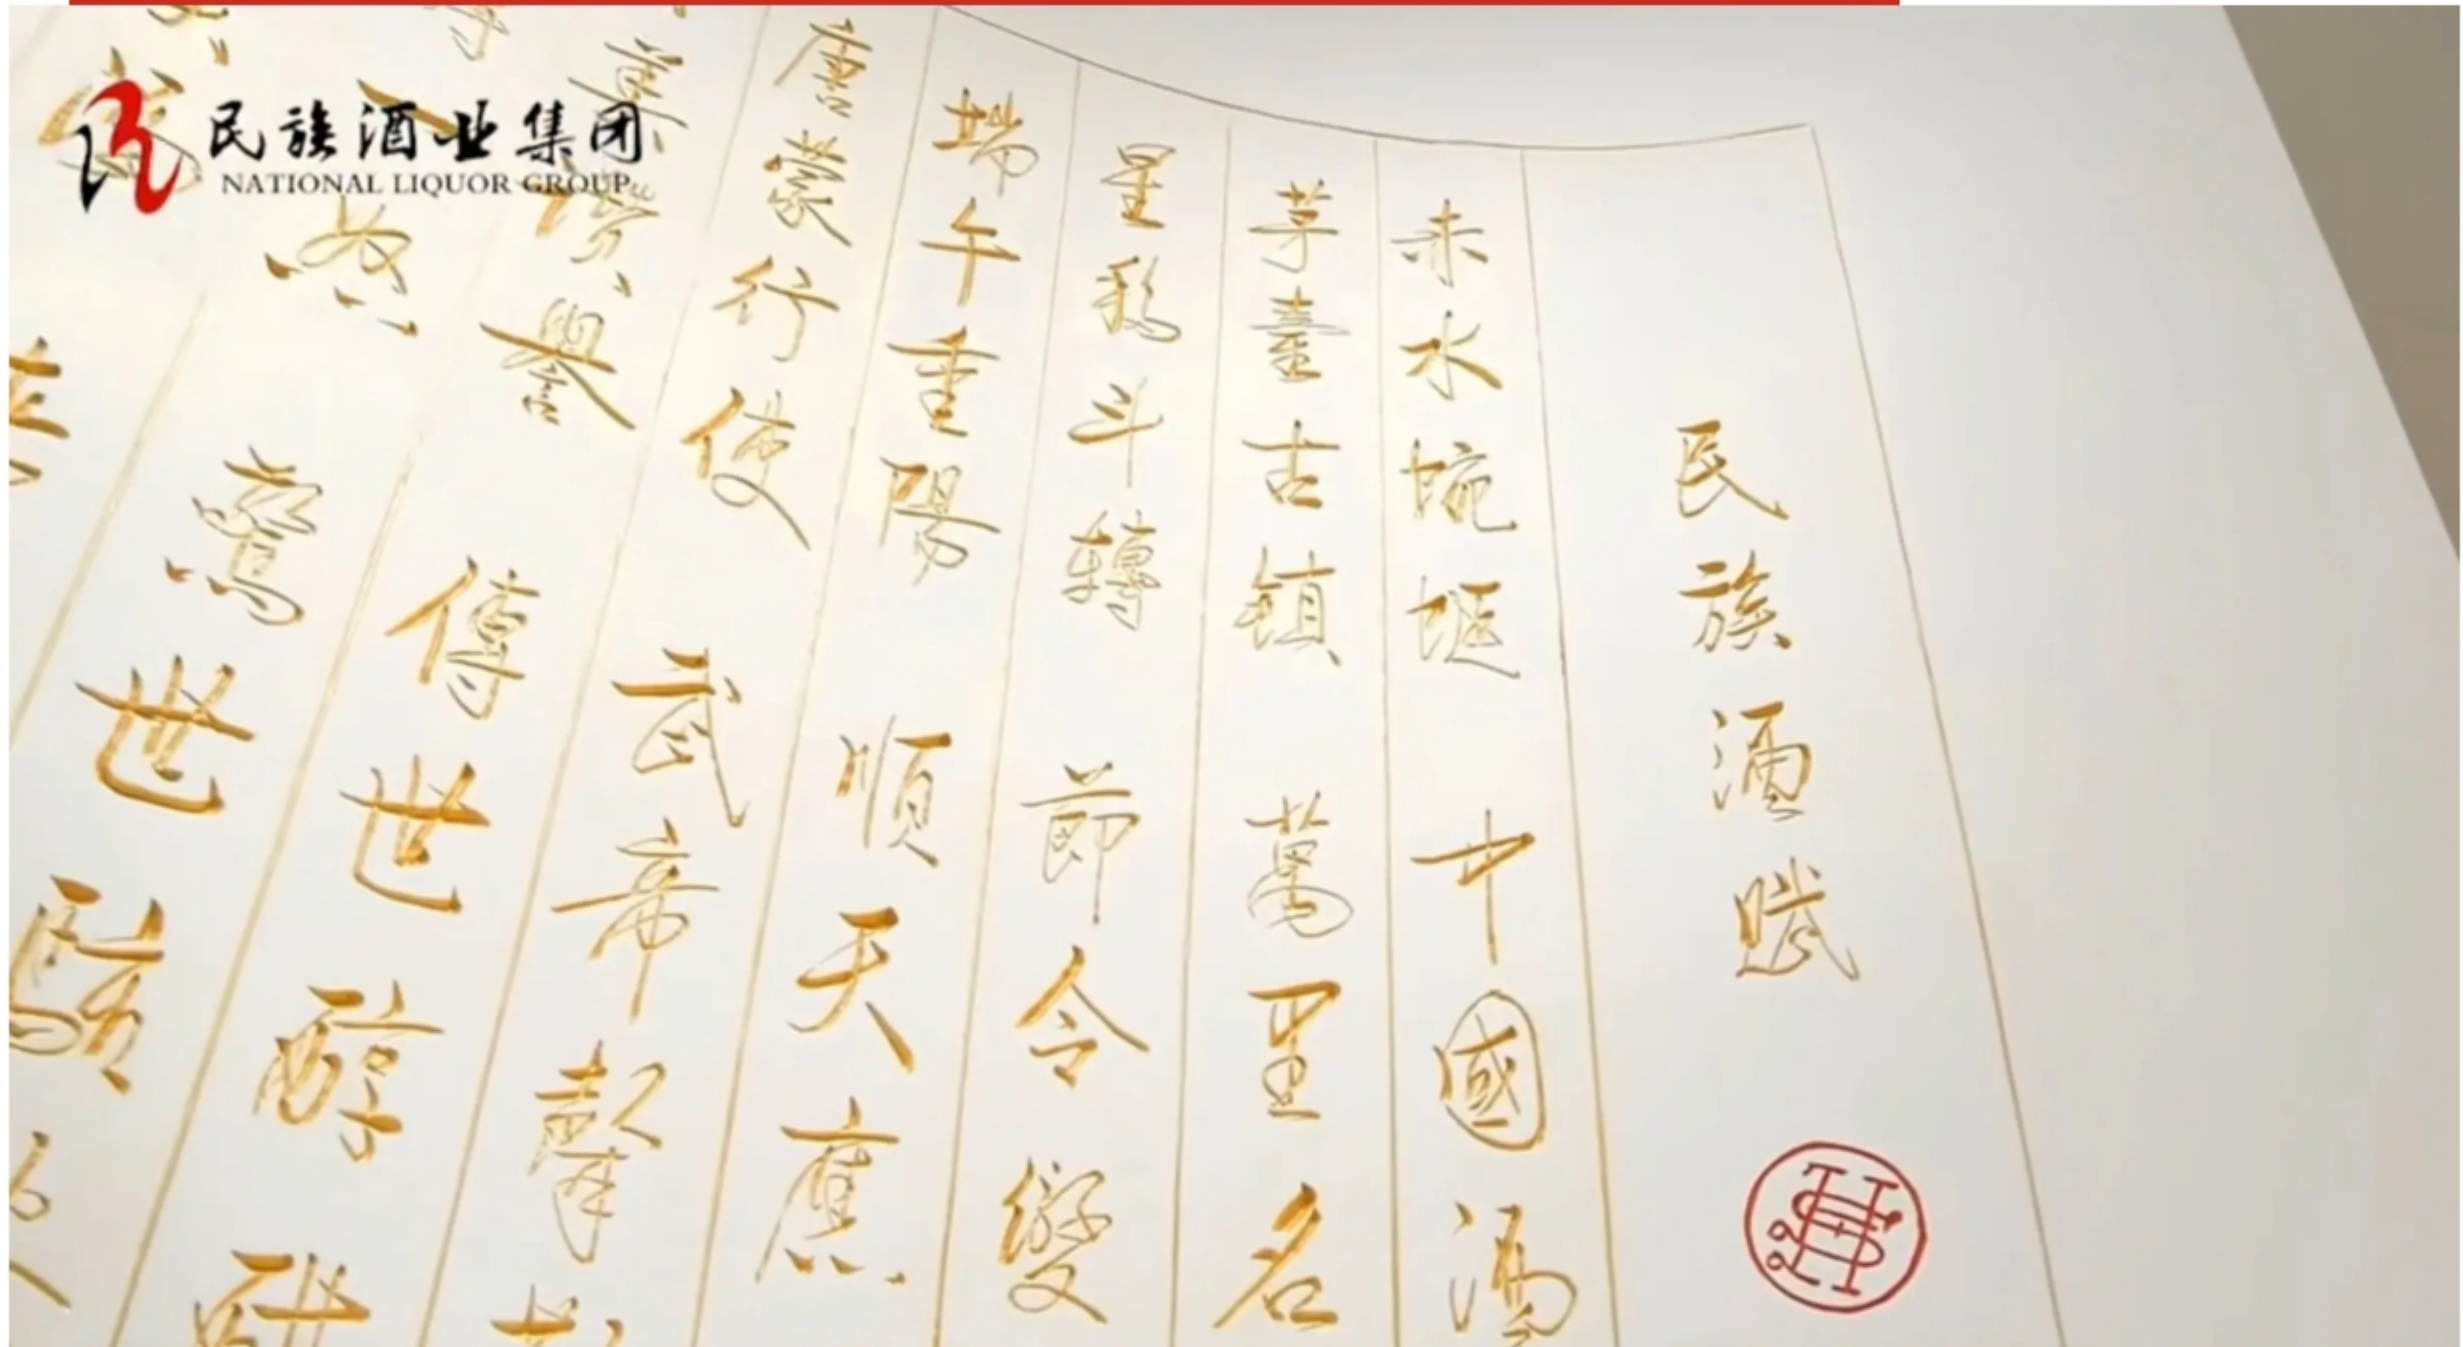 民族酒业集团
NATIONAL LIQUOR GROUP
民族酒賦
赤水 中國酒
茅臺古鎮 萬里名
星移斗轉 節令變
端午重陽 順天應
唐蒙行使 武帝
讚譽 傳世醇
世駭